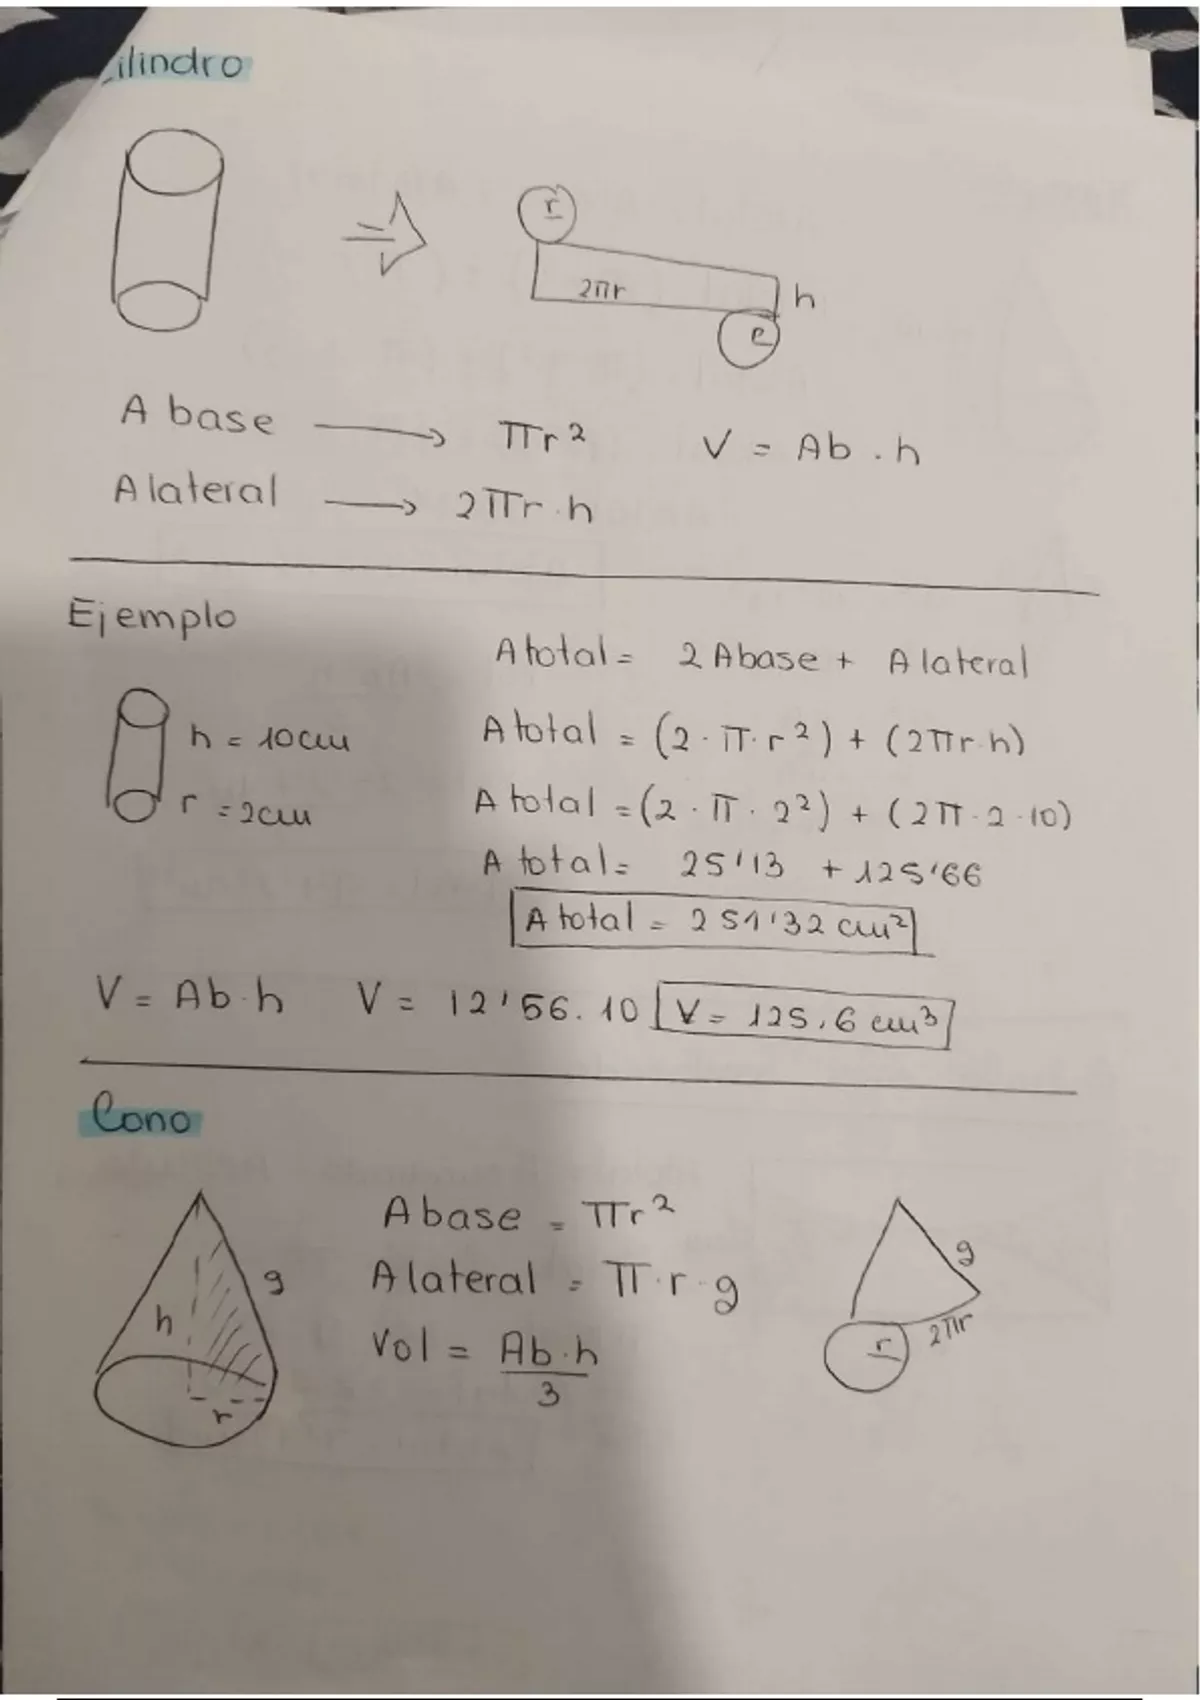 Cilindro
r
2πr h
r
A base → πr² V = Ab . h
A lateral → 2πr·h
Ejemplo
A total = 2 Abase + A lateral
h = 10cm A total = (2·π·r²) + (2πr·h)
r = 2cm A total = (2·π·2²) + (2π·2·10)
A total = 25'13 + 125'66
A total = 251'32 cm²
V = Ab·h V = 12'56.10 V = 125,6 cm³
Cono
A base = πr²
g A lateral = π·r·g g
h Vol = Ab·h 2πr
3 r
r